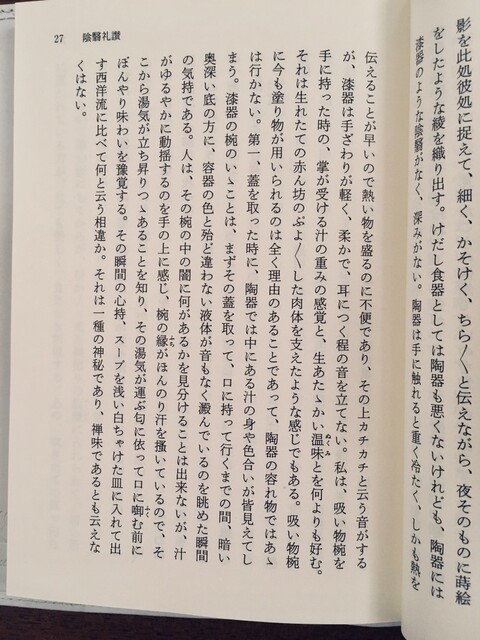 影を此処彼処に捉えて、細く、かそけく、ちら〳〵と伝えながら、夜そのものに蒔絵
をしたような綾を織り出す。けだし食器としては陶器も悪くないけれども、陶器には
漆器のような陰翳がなく、深みがない。陶器は手に触れると重く冷たく、しかも熱を
27 陰翳礼讃
伝えることが早いので熱い物を盛るのに不便であり、その上カチカチと云う音がする
が、漆器は手ざわりが軽く、柔かで、耳につく程の音を立てない。私は、吸い物椀を
手に持った時の、掌が受ける汁の重みの感覚と、生あたゝかい温味とを何よりも好む。
ぬくみ
それは生れたての赤ん坊のぷよ〳〵した肉体を支えたような感じでもある。吸い物椀
に今も塗り物が用いられるのは全く理由のあることであって、陶器の容れ物ではあゝ
は行かない。第一、蓋を取った時に、陶器では中にある汁の身や色合いが皆見えてし
まう。漆器の椀のいゝことは、まずその蓋を取って、口に持って行くまでの間、暗い
奥深い底の方に、容器の色と殆ど違わない液体が音もなく澱んでいるのを眺めた瞬間
の気持である。人は、その椀の中の闇に何があるかを見分けることは出来ないが、汁
がゆるやかに動揺するのを手の上に感じ、椀の縁がほんのり汗を掻いているので、そ
ふち
こから湯気が立ち昇りつゝあることを知り、その湯気が運ぶ匂に依って口に啣む前に
ふく
ぼんやり味わいを豫覚する。その瞬間の心持、スープを浅い白ちゃけた皿に入れて出
す西洋流に比べて何と云う相違か。それは一種の神秘であり、禅味であるとも云えな
くはない。